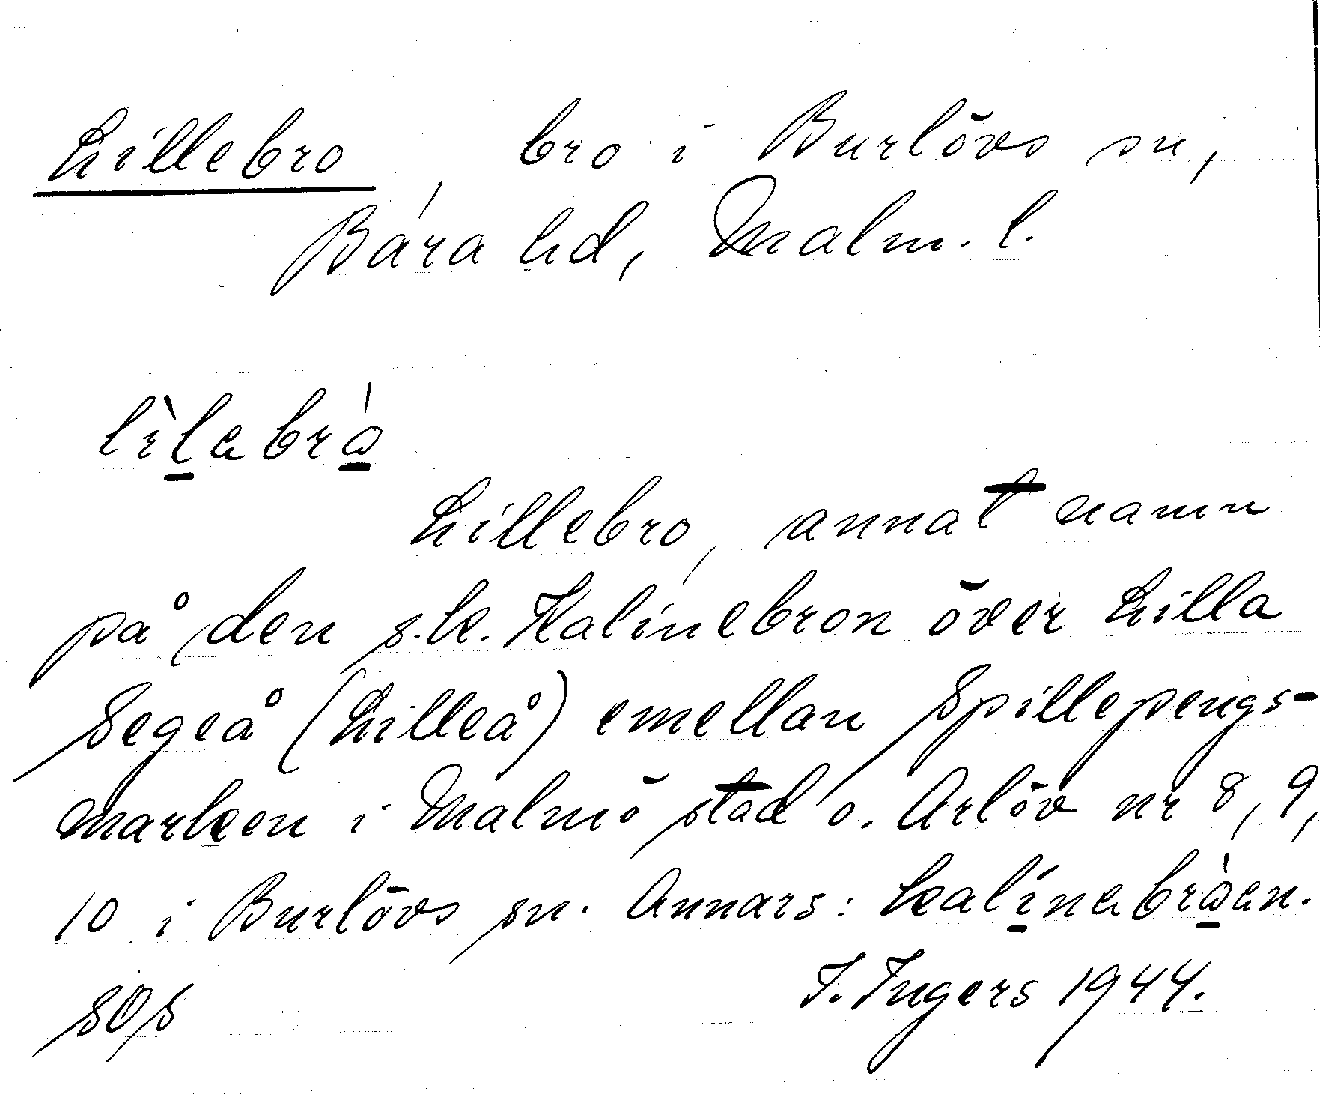 Lillebro, bro i Burlövs sn,
Bara hd, Malm. l.
lìlabrà
Lillebro, annat namn
på den s.k. Kalinebron över Lilla
Segeå (Lilleå) emellan Spillepengs-
marken i Malmö stad o. Arlöv nr 8, 9,
10 i Burlövs sn. Annars: kalínabràen.
I. Ingers 1944.
SOS